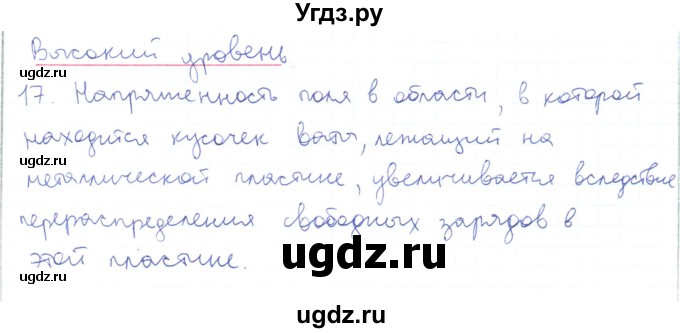 Угдз.ру
Высокий уровень.
ugdz.ru
17. Напряженность поля в области, в которой
находится кусочек ваты, лежащий на
ugdz.ru ugdz.ru
металлической пластине, увеличивается вследствие
ugdz.ru
перераспределения свободных зарядов в
ugdz.ru
этой пластине.
ugdz.ru
ugdz.ru